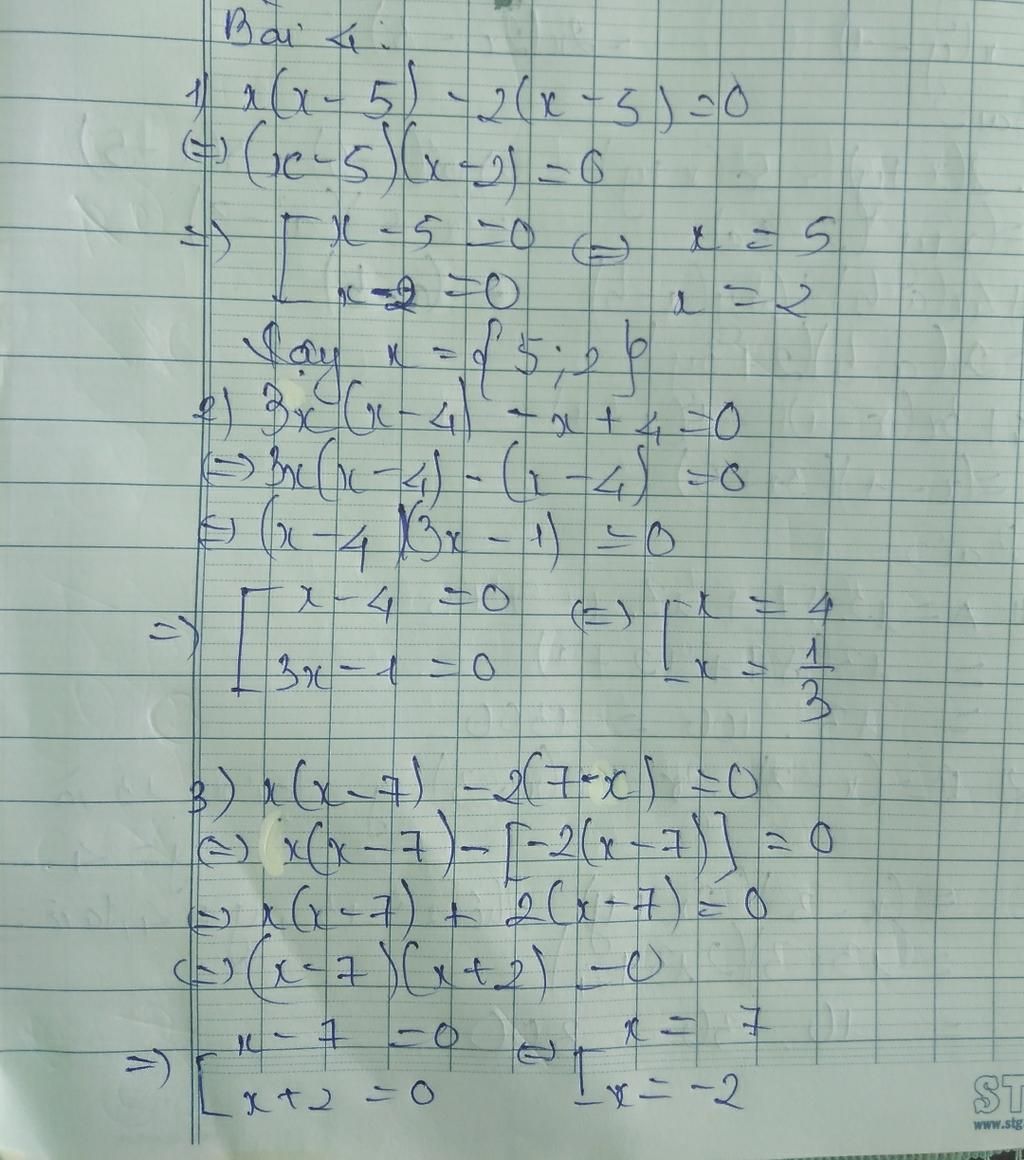 Bài 4:
1) x(x - 5) - 2(x - 5) = 0
(=) (x - 5)(x - 2) = 0
=) [ x - 5 = 0 (=) x = 5
x - 2 = 0 x = 2
Vậy x = { 5 ; 2 }
2) 3x(x - 4) - x + 4 = 0
(=) 3x(x - 4) - (x - 4) = 0
(=) (x - 4)(3x - 1) = 0
=) [ x - 4 = 0 (=) [ x = 4
3x - 1 = 0 x = 1/3
3) x(x - 7) - 2(7 - x) = 0
(=) x(x - 7) - [-2(x - 7)] = 0
(=) x(x - 7) + 2(x - 7) = 0
(=) (x - 7)(x + 2) = 0
=) [ x - 7 = 0 (=) [ x = 7
x + 2 = 0 x = -2
ST
www.stg